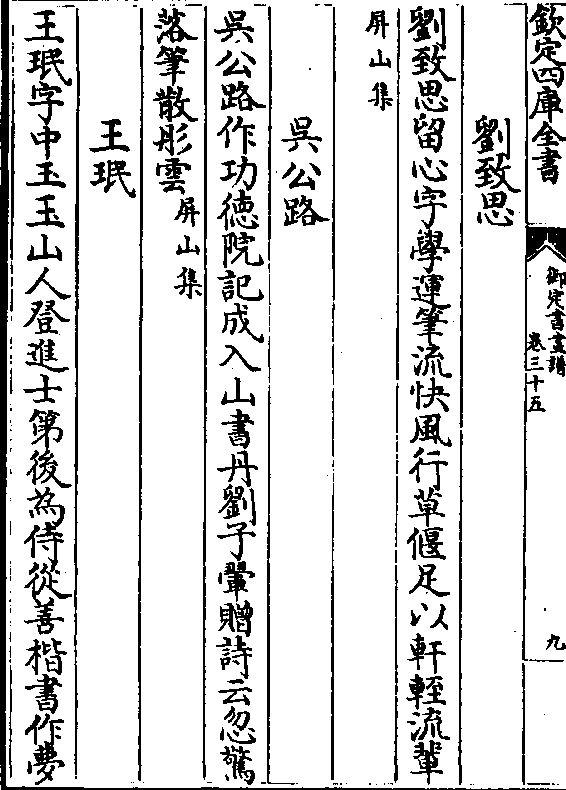 欽定四庫全書
御定書畫譜
卷三十五
九
劉致思
劉致思留心字學運筆流快風行草偃足以軒輊流輩
屏山集
吳公路
吳公路作功德院記成入山書丹劉子翬贈詩云忽驚
落筆散彤雲屏山集
王珉
王珉字中玉玉山人登進士第後為侍從善楷書作夢